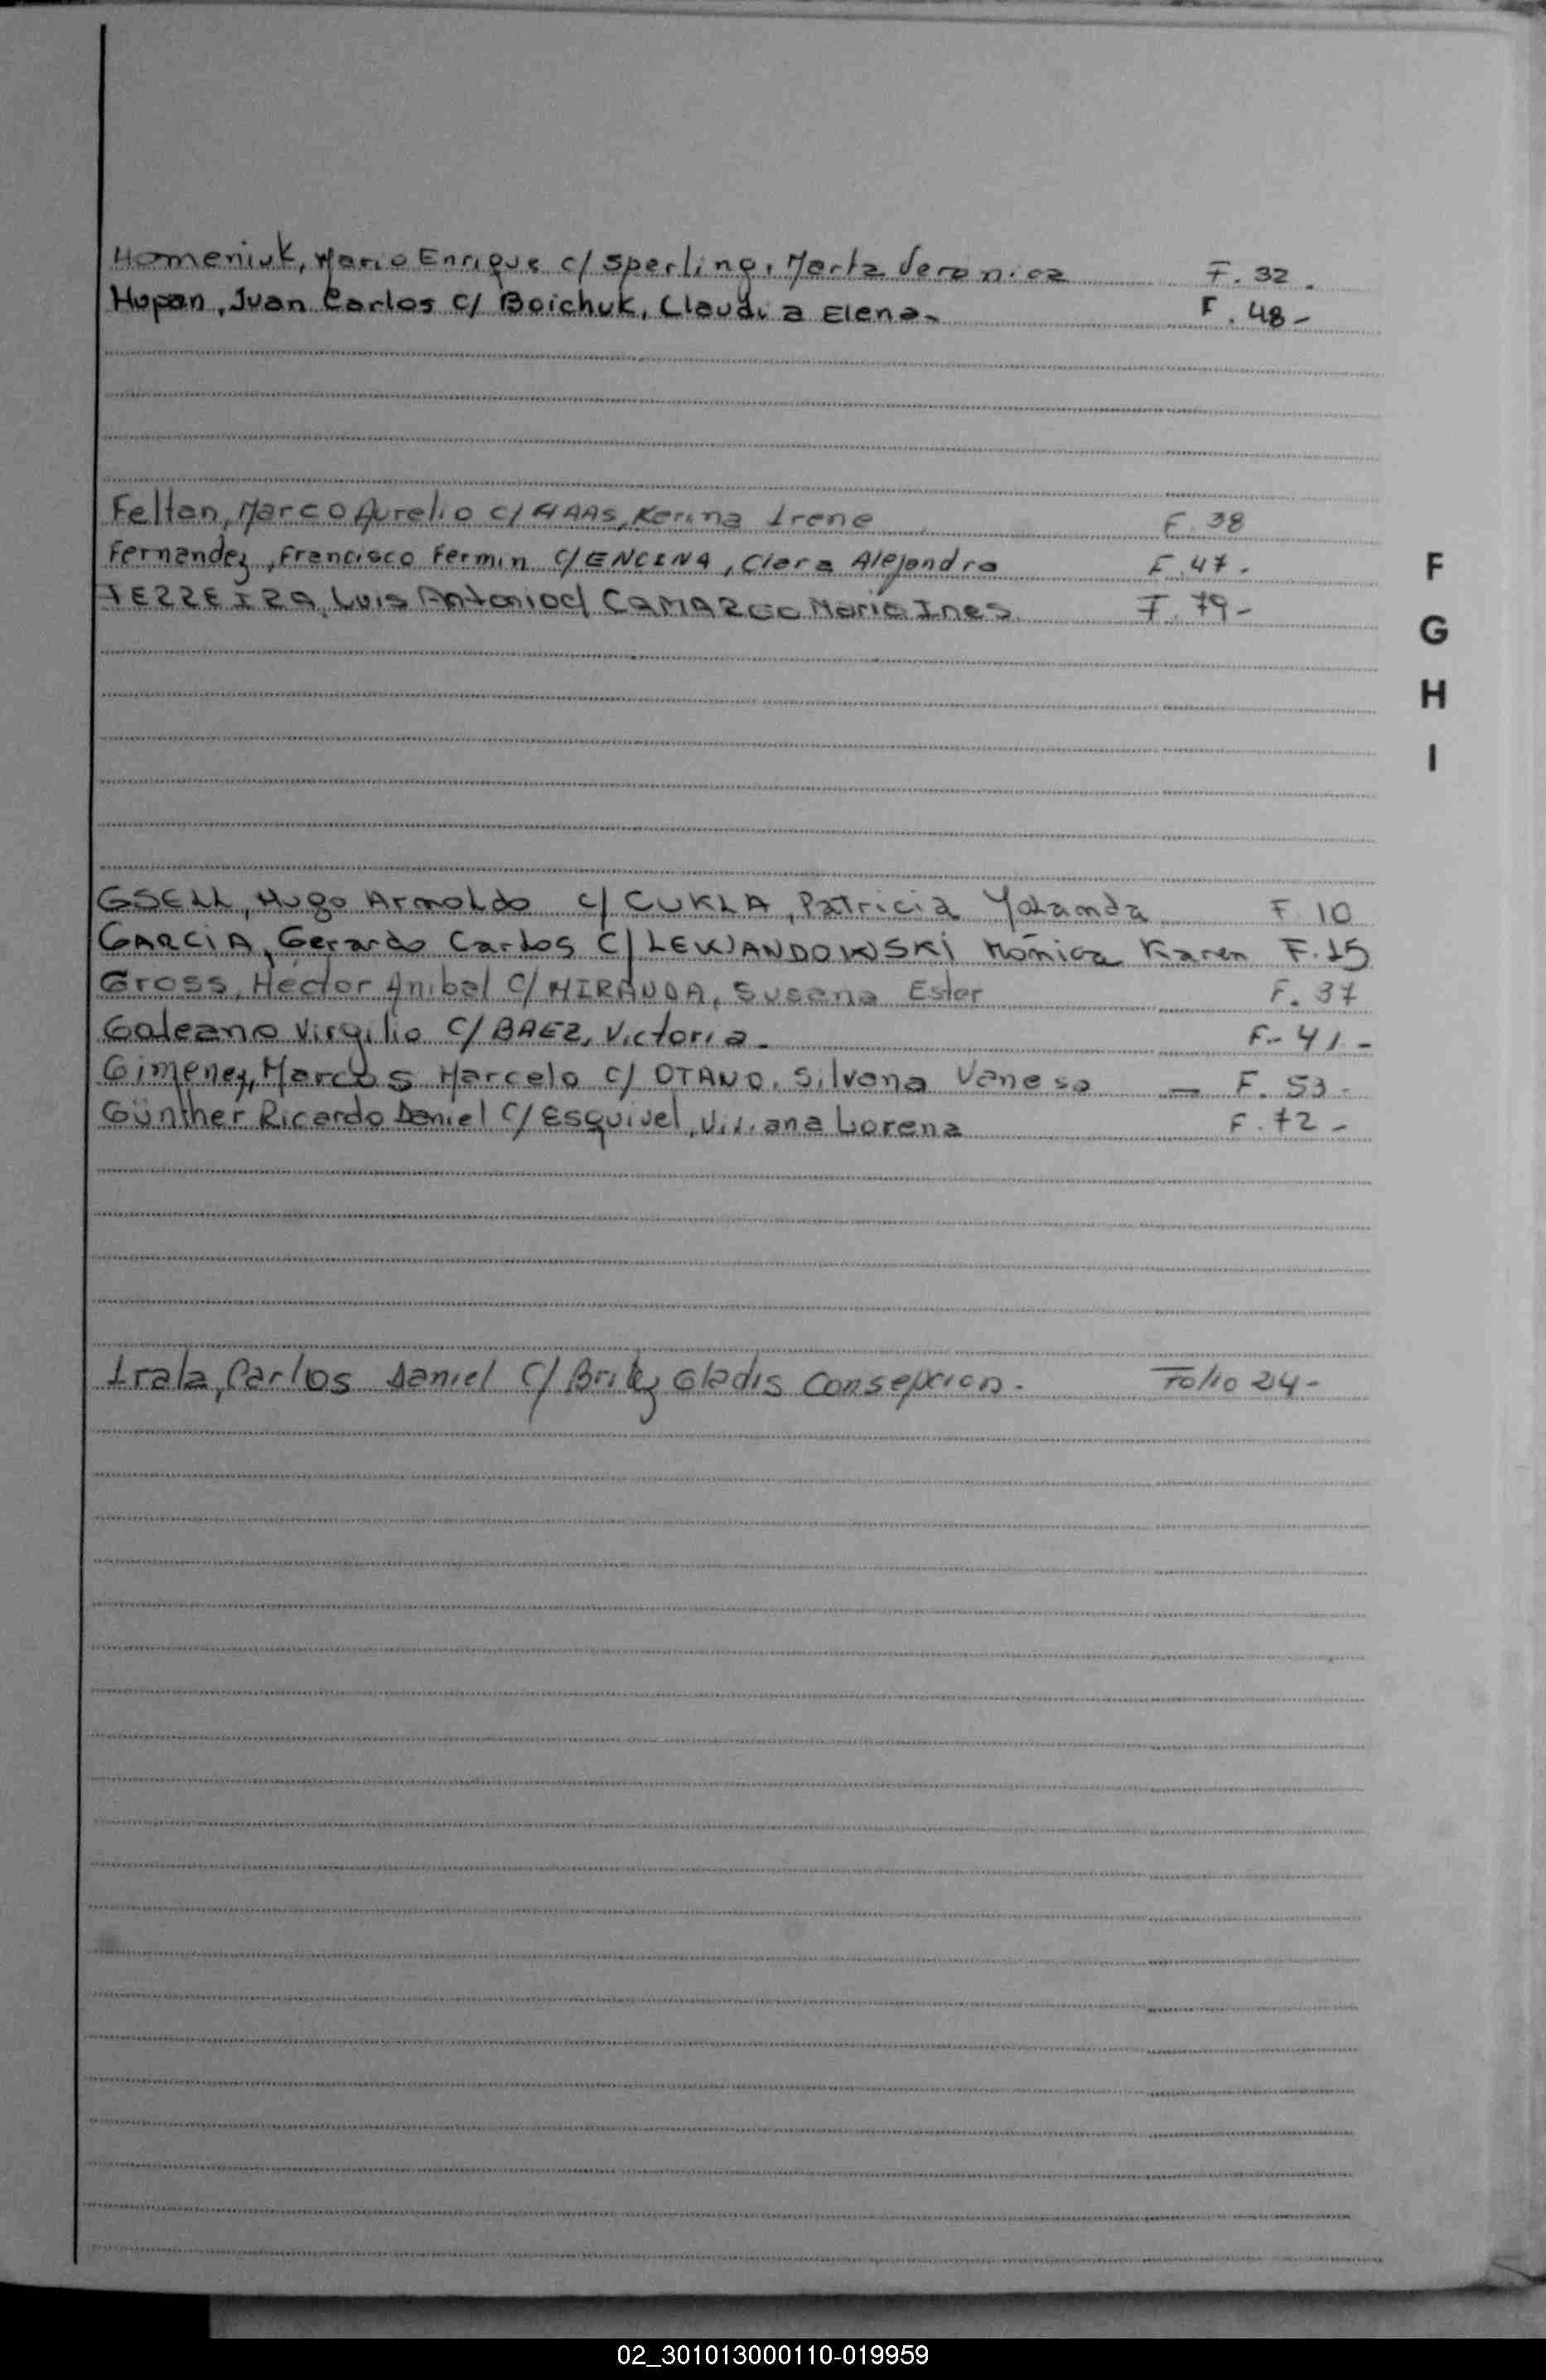 Homeniuk, Mario Enrique c/ Sperling, Marta Veronica F. 32.
Hupan, Juan Carlos c/ Boichuk, Claudia Elena- F. 48-
Feltan, Marco Aurelio c/ HAAS, Karina Irene F. 38
Fernandez, Francisco Fermin c/ ENCINA, Clara Alejandra F. 47-
FERREIRA, Luis Antonio c/ CAMARGO Maria Ines F. 79-
F
G
H
I
GSELL, Hugo Arnoldo c/ CUKLA, Patricia Yolanda F 10
GARCIA, Gerardo Carlos c/ LEWANDOWSKI Mónica Karen F. 15
Gross, Héctor Anibal c/ MIRANDA, Susana Ester F. 37
Galeano Virgilio c/ BAEZ, Victoria- F- 41-
Gimenez, Marcos Marcelo c/ OTANO, Silvana Vanesa — F. 53-
Günther Ricardo Daniel c/ Esquivel, Viviana Lorena F. 72-
Irala, Carlos Daniel c/ Britez Gladis Consepcion- Folio 24-
02_301013000110-019959